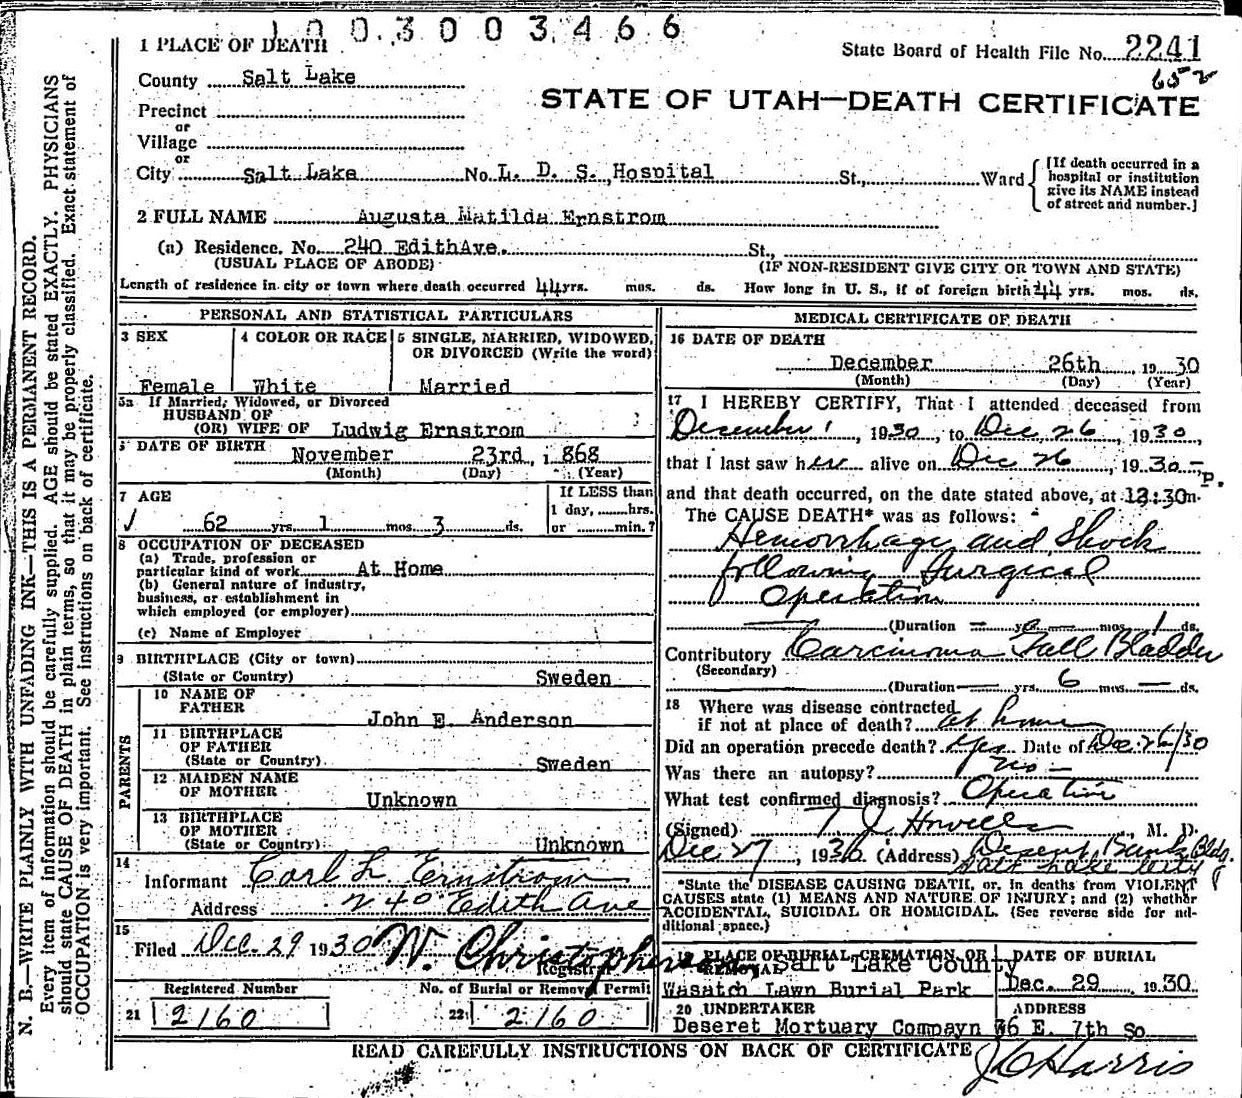 1003003466
1 PLACE OF DEATH
State Board of Health File No. 2241
652
County Salt Lake
STATE OF UTAH—DEATH CERTIFICATE
Precinct
or
Village
or
City Salt Lake No. L. D. S. Hospital St., Ward
[If death occurred in a hospital or institution give its NAME instead of street and number.]
2 FULL NAME Augusta Matilda Ernstrom
(a) Residence. No. 240 EdithAve. St.,
(USUAL PLACE OF ABODE) (IF NON-RESIDENT GIVE CITY OR TOWN AND STATE)
Length of residence in city or town where death occurred 44 yrs. mos. ds. How long in U. S., if of foreign birth 44 yrs. mos. ds.
PERSONAL AND STATISTICAL PARTICULARS
3 SEX
Female
4 COLOR OR RACE
White
5 SINGLE, MARRIED, WIDOWED,
OR DIVORCED (Write the word)
Married
5a If Married, Widowed, or Divorced
HUSBAND OF
(OR) WIFE OF Ludwig Ernstrom
DATE OF BIRTH November 23rd, 1868
(Month) (Day) (Year)
7 AGE
62 yrs. 1 mos. 3 ds.
If LESS than
1 day, hrs.
or min.?
8 OCCUPATION OF DECEASED
(a) Trade, profession or
particular kind of work At Home
(b) General nature of industry,
business, or establishment in
which employed (or employer)
(c) Name of Employer
9 BIRTHPLACE (City or town)
(State or Country) Sweden
PARENTS
10 NAME OF
FATHER John E. Anderson
11 BIRTHPLACE
OF FATHER
(State or Country) Sweden
12 MAIDEN NAME
OF MOTHER Unknown
13 BIRTHPLACE
OF MOTHER
(State or Country) Unknown
14
Informant Carl L Ernstrom
Address 240 Edith Ave
15
Filed Dec. 29 1930 W. Christopherson
Registrar
Registered Number
21 2160
No. of Burial or Removal Permit
22 2160
MEDICAL CERTIFICATE OF DEATH
16 DATE OF DEATH
December 26th, 1930
(Month) (Day) (Year)
17 I HEREBY CERTIFY, That I attended deceased from
December 1, 1930, to Dec 26, 1930
that I last saw her alive on Dec 26, 1930
and that death occurred, on the date stated above, at 12:30 P.m.
The CAUSE DEATH* was as follows:
Hemorrhage and Shock
following Surgical
Operation
(Duration yrs. mos. 1 ds.
Contributory Carcinoma Gall Bladder
(Secondary)
(Duration yrs. 6 mos. ds.
18 Where was disease contracted
if not at place of death? at home
Did an operation precede death? Yes Date of Dec 26/30
Was there an autopsy? no
What test confirmed diagnosis? Operation
(Signed) T J Howells, M. D.
Dec 27, 1930 (Address) Deseret Bank Bldg.
Salt Lake City
*State the DISEASE CAUSING DEATH, or, in deaths from VIOLENT
CAUSES state (1) MEANS AND NATURE OF INJURY; and (2) whether
ACCIDENTAL, SUICIDAL OR HOMICIDAL. (See reverse side for additional space.)
19 PLACE OF BURIAL, CREMATION, OR
REMOVAL Salt Lake County
Wasatch Lawn Burial Park
DATE OF BURIAL
Dec. 29 1930
20 UNDERTAKER
Deseret Mortuary Compayn
ADDRESS
36 E. 7th So
READ CAREFULLY INSTRUCTIONS ON BACK OF CERTIFICATE
J C Harris
N. B.—WRITE PLAINLY WITH UNFADING INK—THIS IS A PERMANENT RECORD.
Every item of information should be carefully supplied. AGE should be stated EXACTLY. PHYSICIANS
should state CAUSE OF DEATH in plain terms, so that it may be properly classified. Exact statement of
OCCUPATION is very important. See Instructions on back of certificate.